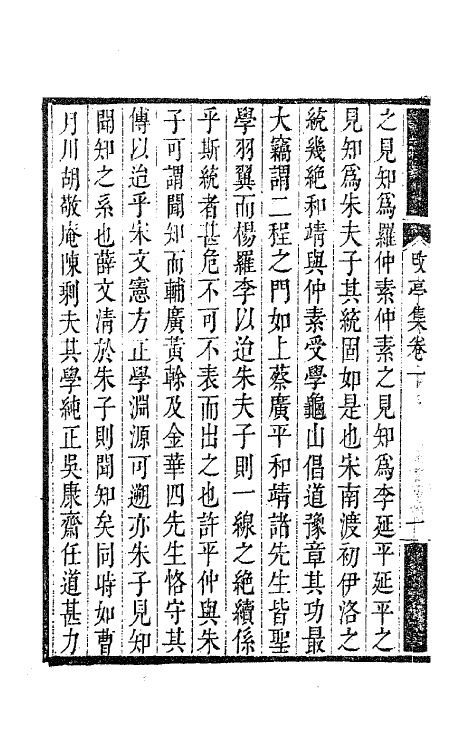 之見知爲羅仲素仲素之見知爲李延平延平之
見知爲朱夫子其統固如是也宋南渡初伊洛之
統幾絶和靖與仲素受學龜山倡道豫章其功最
大竊謂二程之門如上蔡廣平和靖諸先生皆聖
學羽翼而楊羅李以迨朱夫子則一線之絶續係
乎斯統者甚危不可不表而出之也許平仲與朱
子可謂聞知而輔廣黃榦及金華四先生恪守其
傳以迨乎宋文憲方正學淵源可遡亦朱子見知
聞知之系也薛文清於朱子則聞知矣同時如曹
月川胡敬庵陳剩夫其學純正吳康齋任道甚力
改亭集卷一